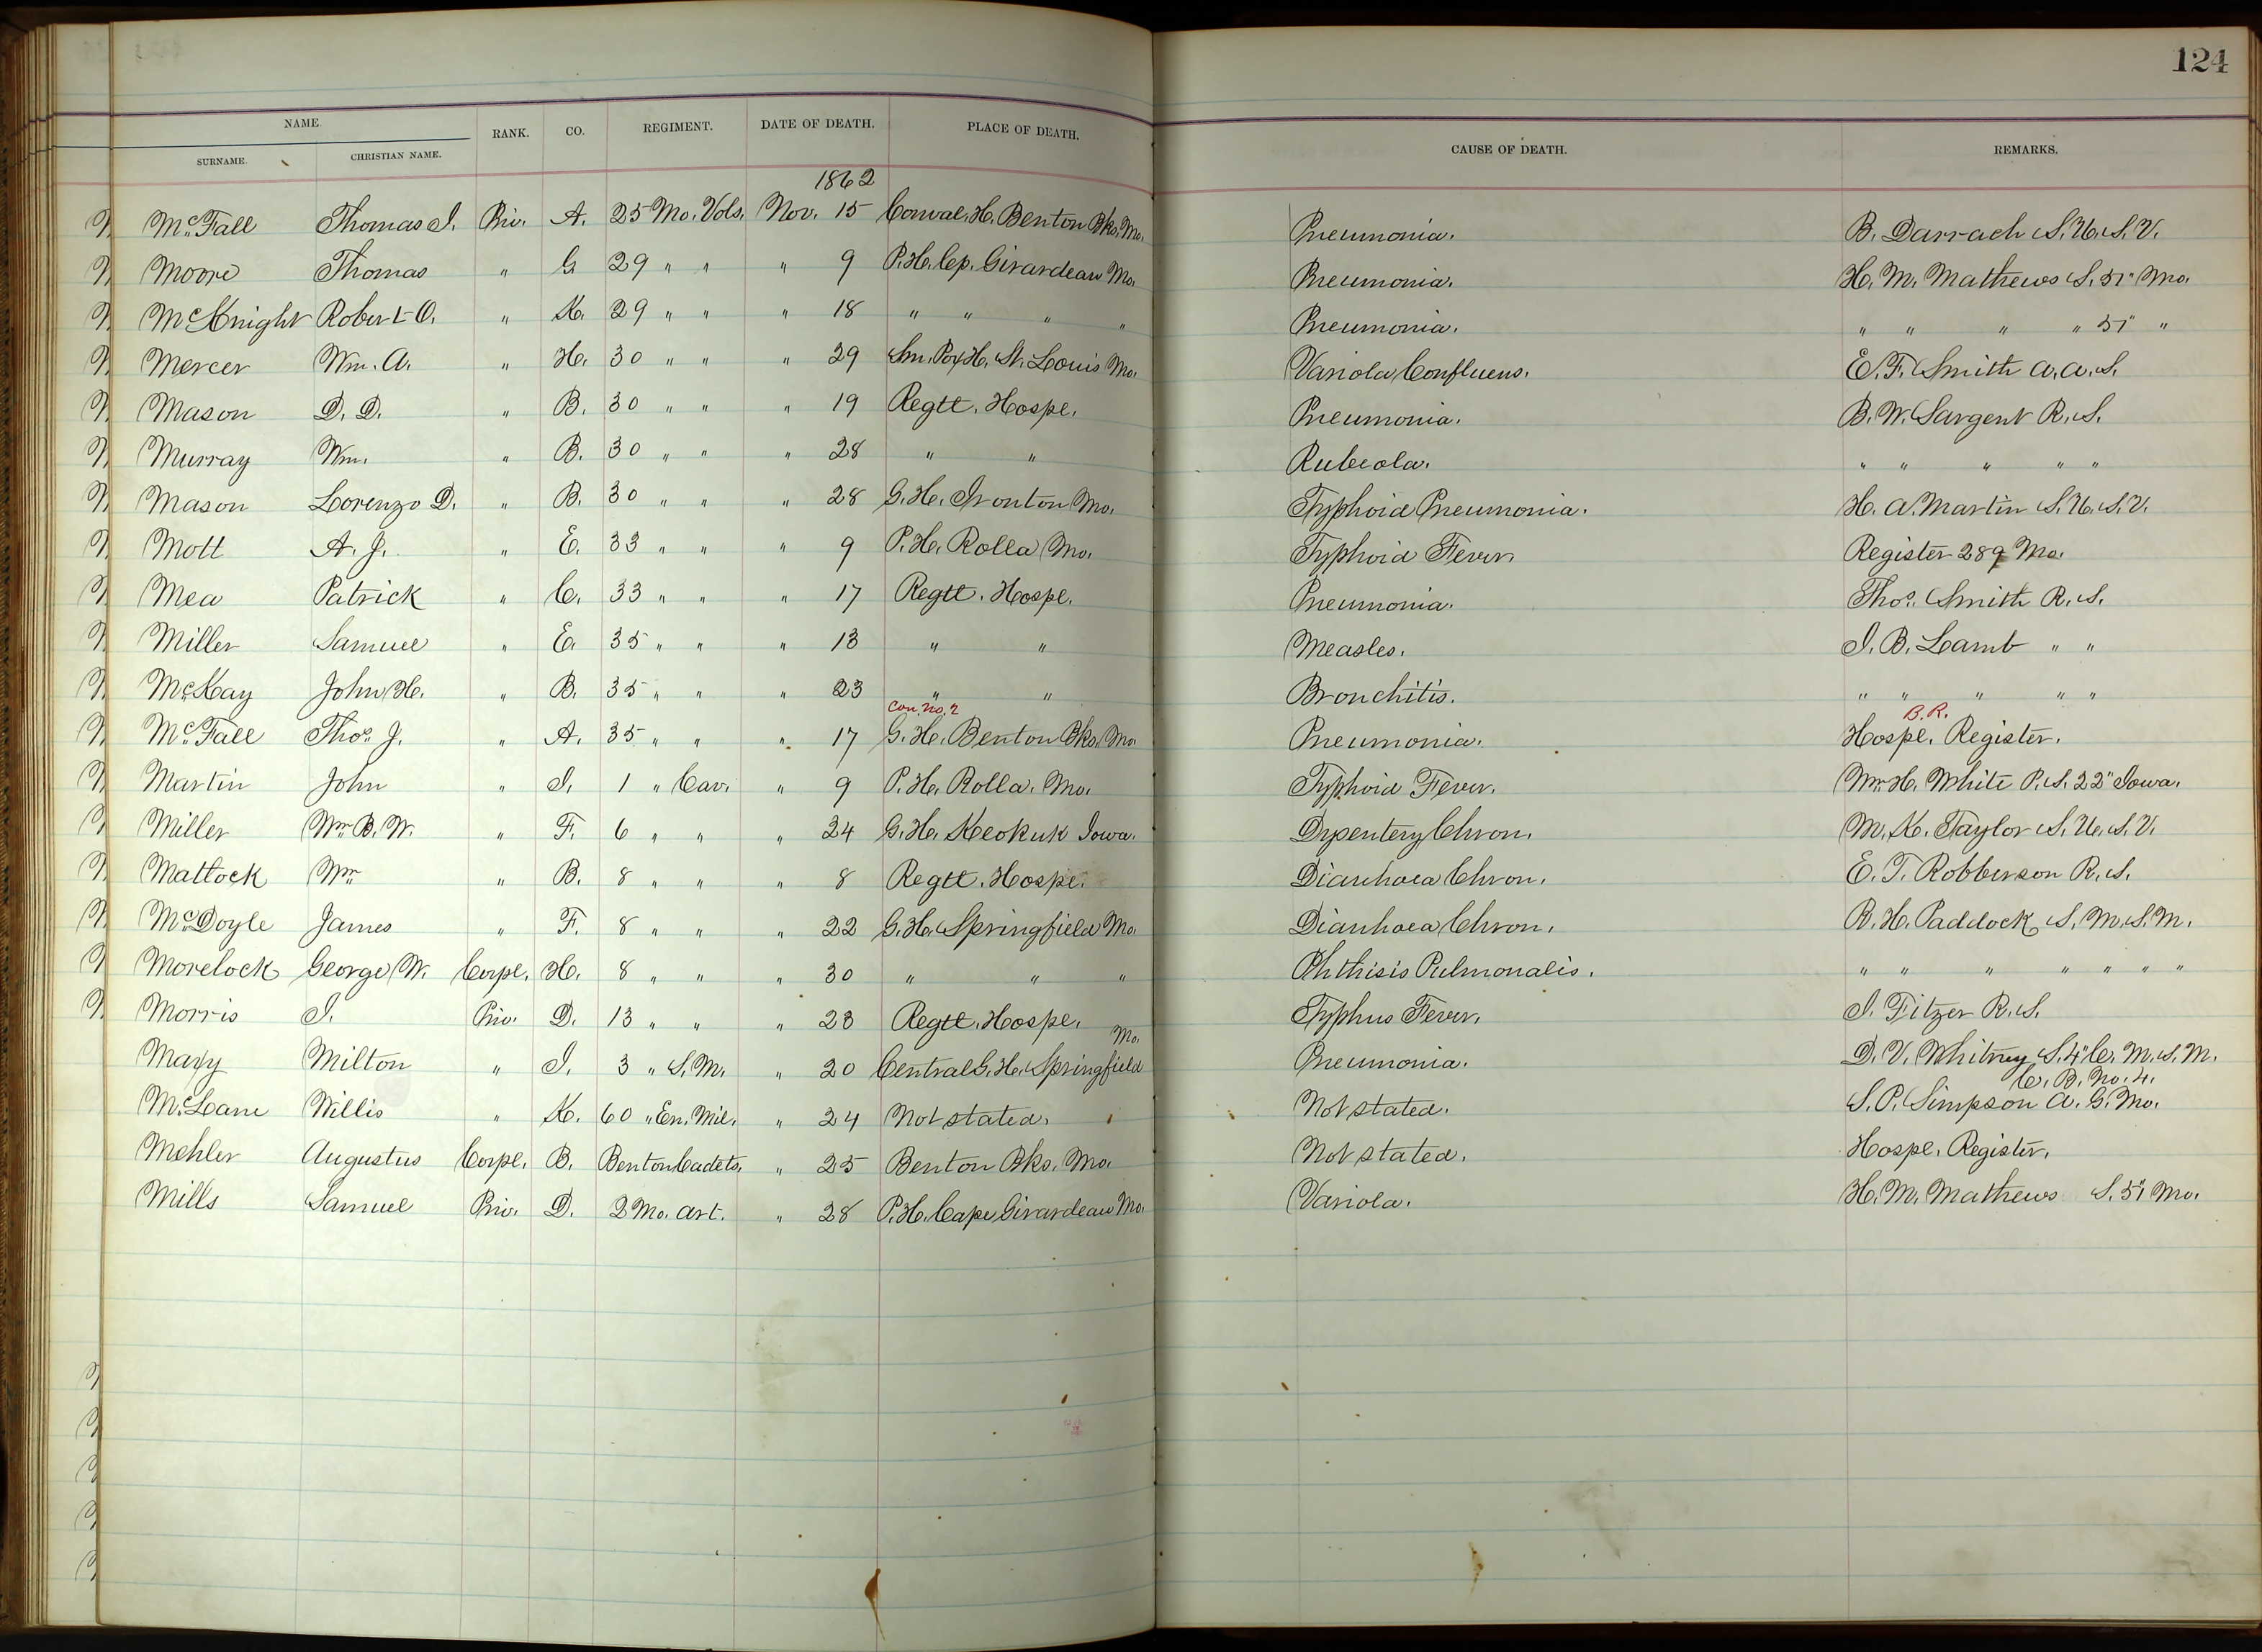 124
NAME. RANK. CO. REGIMENT. DATE OF DEATH. PLACE OF DEATH. CAUSE OF DEATH. REMARKS.
SURNAME. CHRISTIAN NAME.
1862
McFall Thomas J. Priv. A. 25 Mo. Vols. Nov. 15 Conval. H. Benton Bks. Mo. Pneumonia. B. Darrach S. U. S. V.
Moore Thomas " G 29 " " " 9 P. H. Cp. Girardeau Mo. Pneumonia. H. M. Mathews S. 51" Mo.
McKnight Robert O. " K. 29 " " " 18 " " " " Pneumonia. " " " " 51" "
Mercer Wm. A. " H. 30 " " " 29 Sm. Pox H. St. Louis Mo. Variola Confluens. E. F. Smith A. A. S.
Mason D. D. " B. 30 " " " 19 Regtl. Hospl. Pneumonia. B. W. Sargent R. S.
Murray Wm. " B. 30 " " " 28 " " Rubeola. " " " " "
Mason Lorenzo D. " B. 30 " " " 28 G. H. Ironton Mo. Typhoid Pneumonia. H. A. Martin S. U. S. V.
Mott A. J. " E. 33 " " " 9 P. H. Rolla Mo. Typhoid Fever Register 289 Mo.
Mea Patrick " C. 33 " " " 17 Regtl. Hospl. Pneumonia. Thos. Smith R. S.
Miller Samuel " E. 35 " " " 13 " " Measles. J. B. Lamb " "
McKay John H. " B. 35 " " " 23 " " Bronchitis. " " " " "
Con. No. 2 B. R.
McFall Thos. J. " A. 35 " " " 17 G. H. Benton Bks. Mo. Pneumonia. Hospl. Register.
Martin John " I. 1 " Cav. " 9 P. H. Rolla. Mo. Typhoid Fever. Wm. H. White P. S. 22" Iowa.
Miller Wm. B. W. " F. 6 " " " 24 G. H. Keokuk Iowa. Dysentery Chron. M. K. Taylor S. U. S. V.
Mattock Wm " B. 8 " " " 8 Regtl. Hospl. Diarrhoea Chron. E. T. Robberson R. S.
McDoyle James " F. 8 " " " 22 G. H. Springfield Mo. Diarrhoea Chron. R. H. Paddock S. M. S. M.
Morelock George W. Corpl. H. 8 " " " 30 " " " Phthisis Pulmonalis. " " " " " " "
Morris J. Priv. D. 13 " " " 23 Regtl. Hospl. Typhus Fever. J. Fitzer R. S.
Mo.
Maxy Milton " I. 3 " S. M. " 20 Central G. H. Springfield Pneumonia. D. V. Whitney S. 4" C. M. S. M.
C. B. No. 4.
McLane Willis " K. 60 " En. Mil. " 24 Not stated. Not stated. S. P. Simpson A. G. Mo.
Mehler Augustus Corpl. B. Benton Cadets. " 25 Benton Bks. Mo. Not stated. Hospl. Register.
Mills Samuel Priv. D. 2 Mo. Art. " 28 P. H. Cape Girardeau Mo. Variola. H. M. Mathews S. 51 Mo.